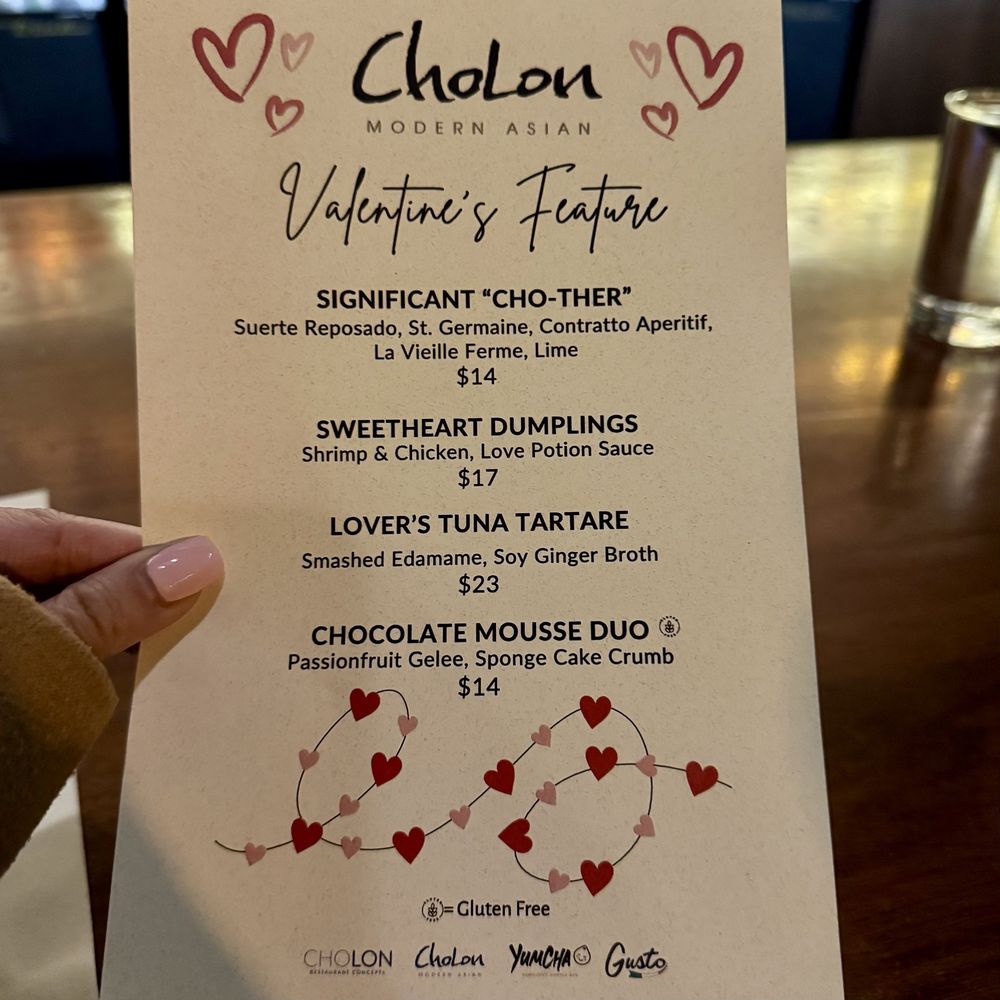 CHOLON
MODERN ASIAN
Valentine's Feature
SIGNIFICANT “CHO-THER”
Suerte Reposado, St. Germaine, Contratto Aperitif,
La Vieille Ferme, Lime
$14
SWEETHEART DUMPLINGS
Shrimp & Chicken, Love Potion Sauce
$17
LOVER’S TUNA TARTARE
Smashed Edamame, Soy Ginger Broth
$23
CHOCOLATE MOUSSE DUO
Passionfruit Gelee, Sponge Cake Crumb
$14
= Gluten Free
CHOLON ChoLon YUMCHA Gusto
RESTAURANT CONCEPTS MODERN ASIAN